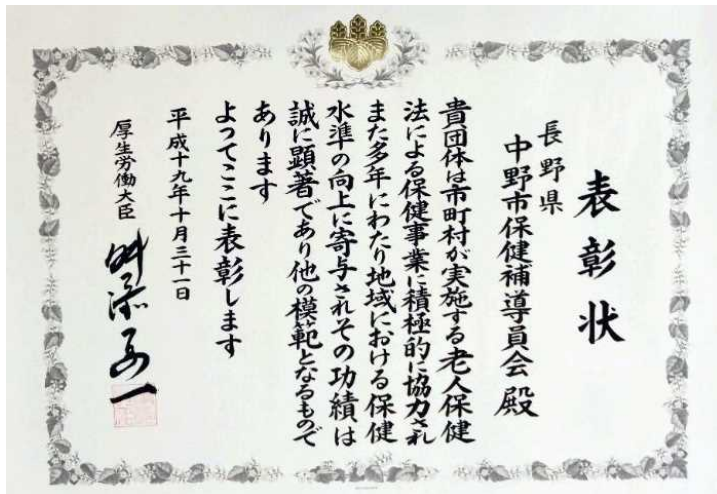 表彰状
長野県
中野市保健補導員会 殿
貴団体は市町村が実施する老人保健
法による保健事業に積極的に協力され
また多年にわたり地域における保健
水準の向上に寄与されその功績は
誠に顕著であり他の模範となるもので
あります
よってここに表彰します
平成十九年十月三十一日
厚生労働大臣 舛添要一